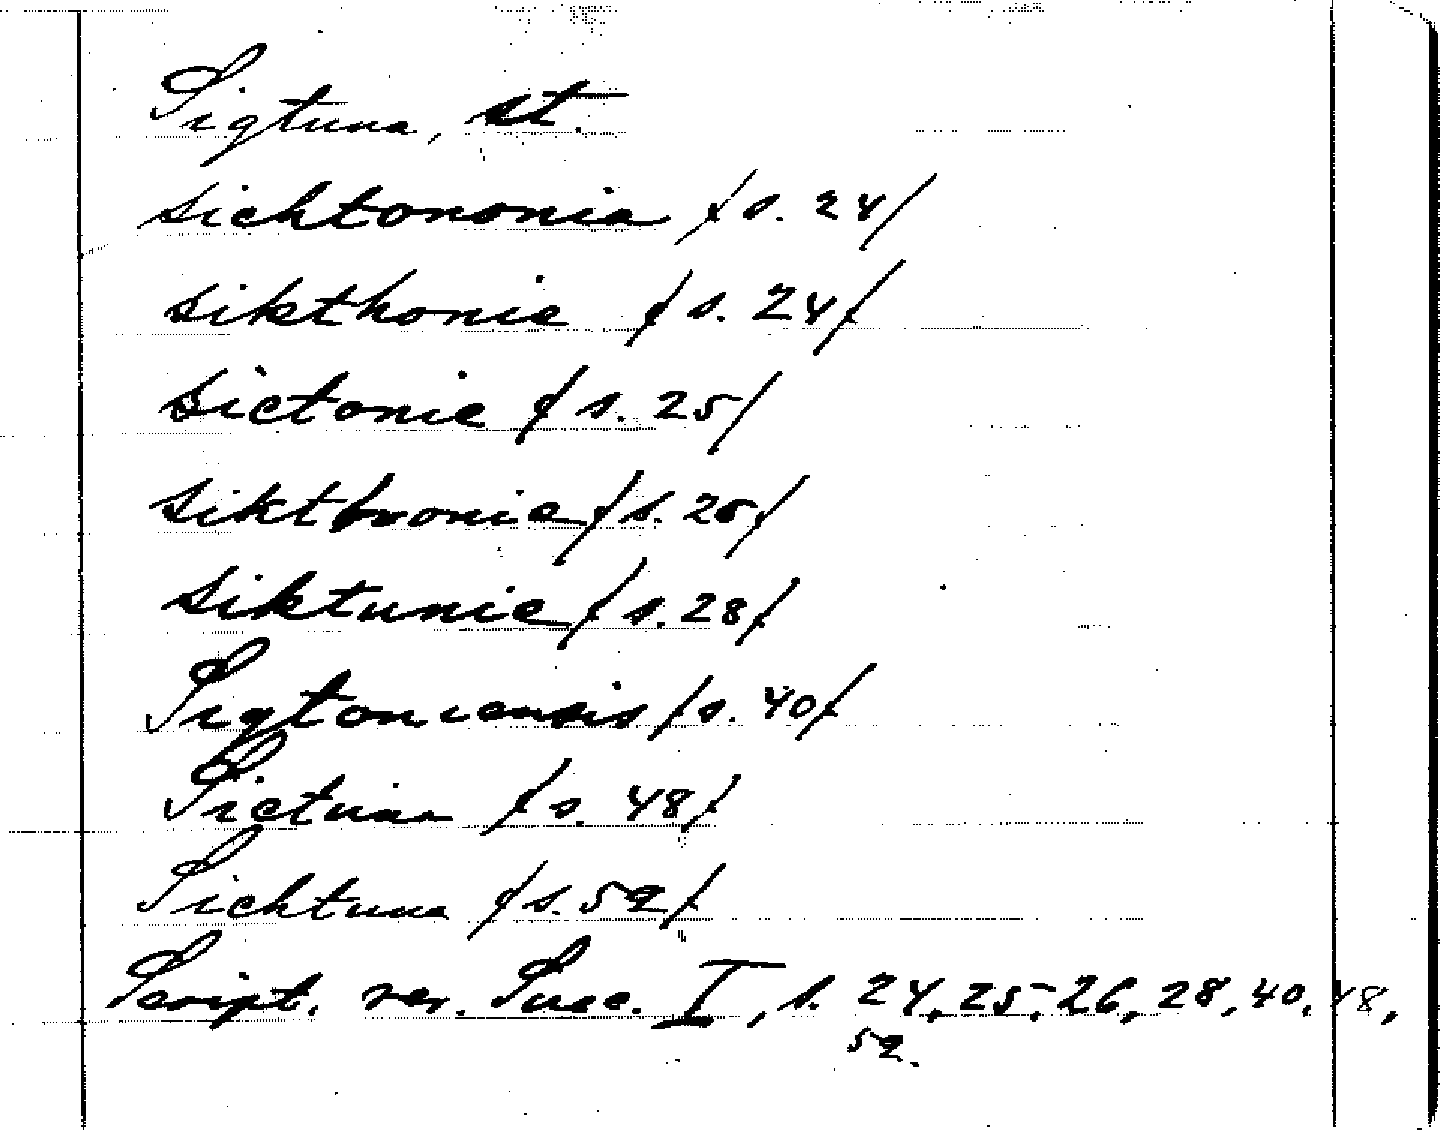 Sigtuna, st.
sichtononia /s. 24/
sikthonie /s. 24/
sictonie /s. 25/
/s. 26/
siktunie /s. 28/
Sigtoniensis /s. 40/
Sictuna /s. 48/
Sichtuna /s. 52/
Script. rer. Suec. I, s. 24, 25, 26, 28, 40, 48,
52.